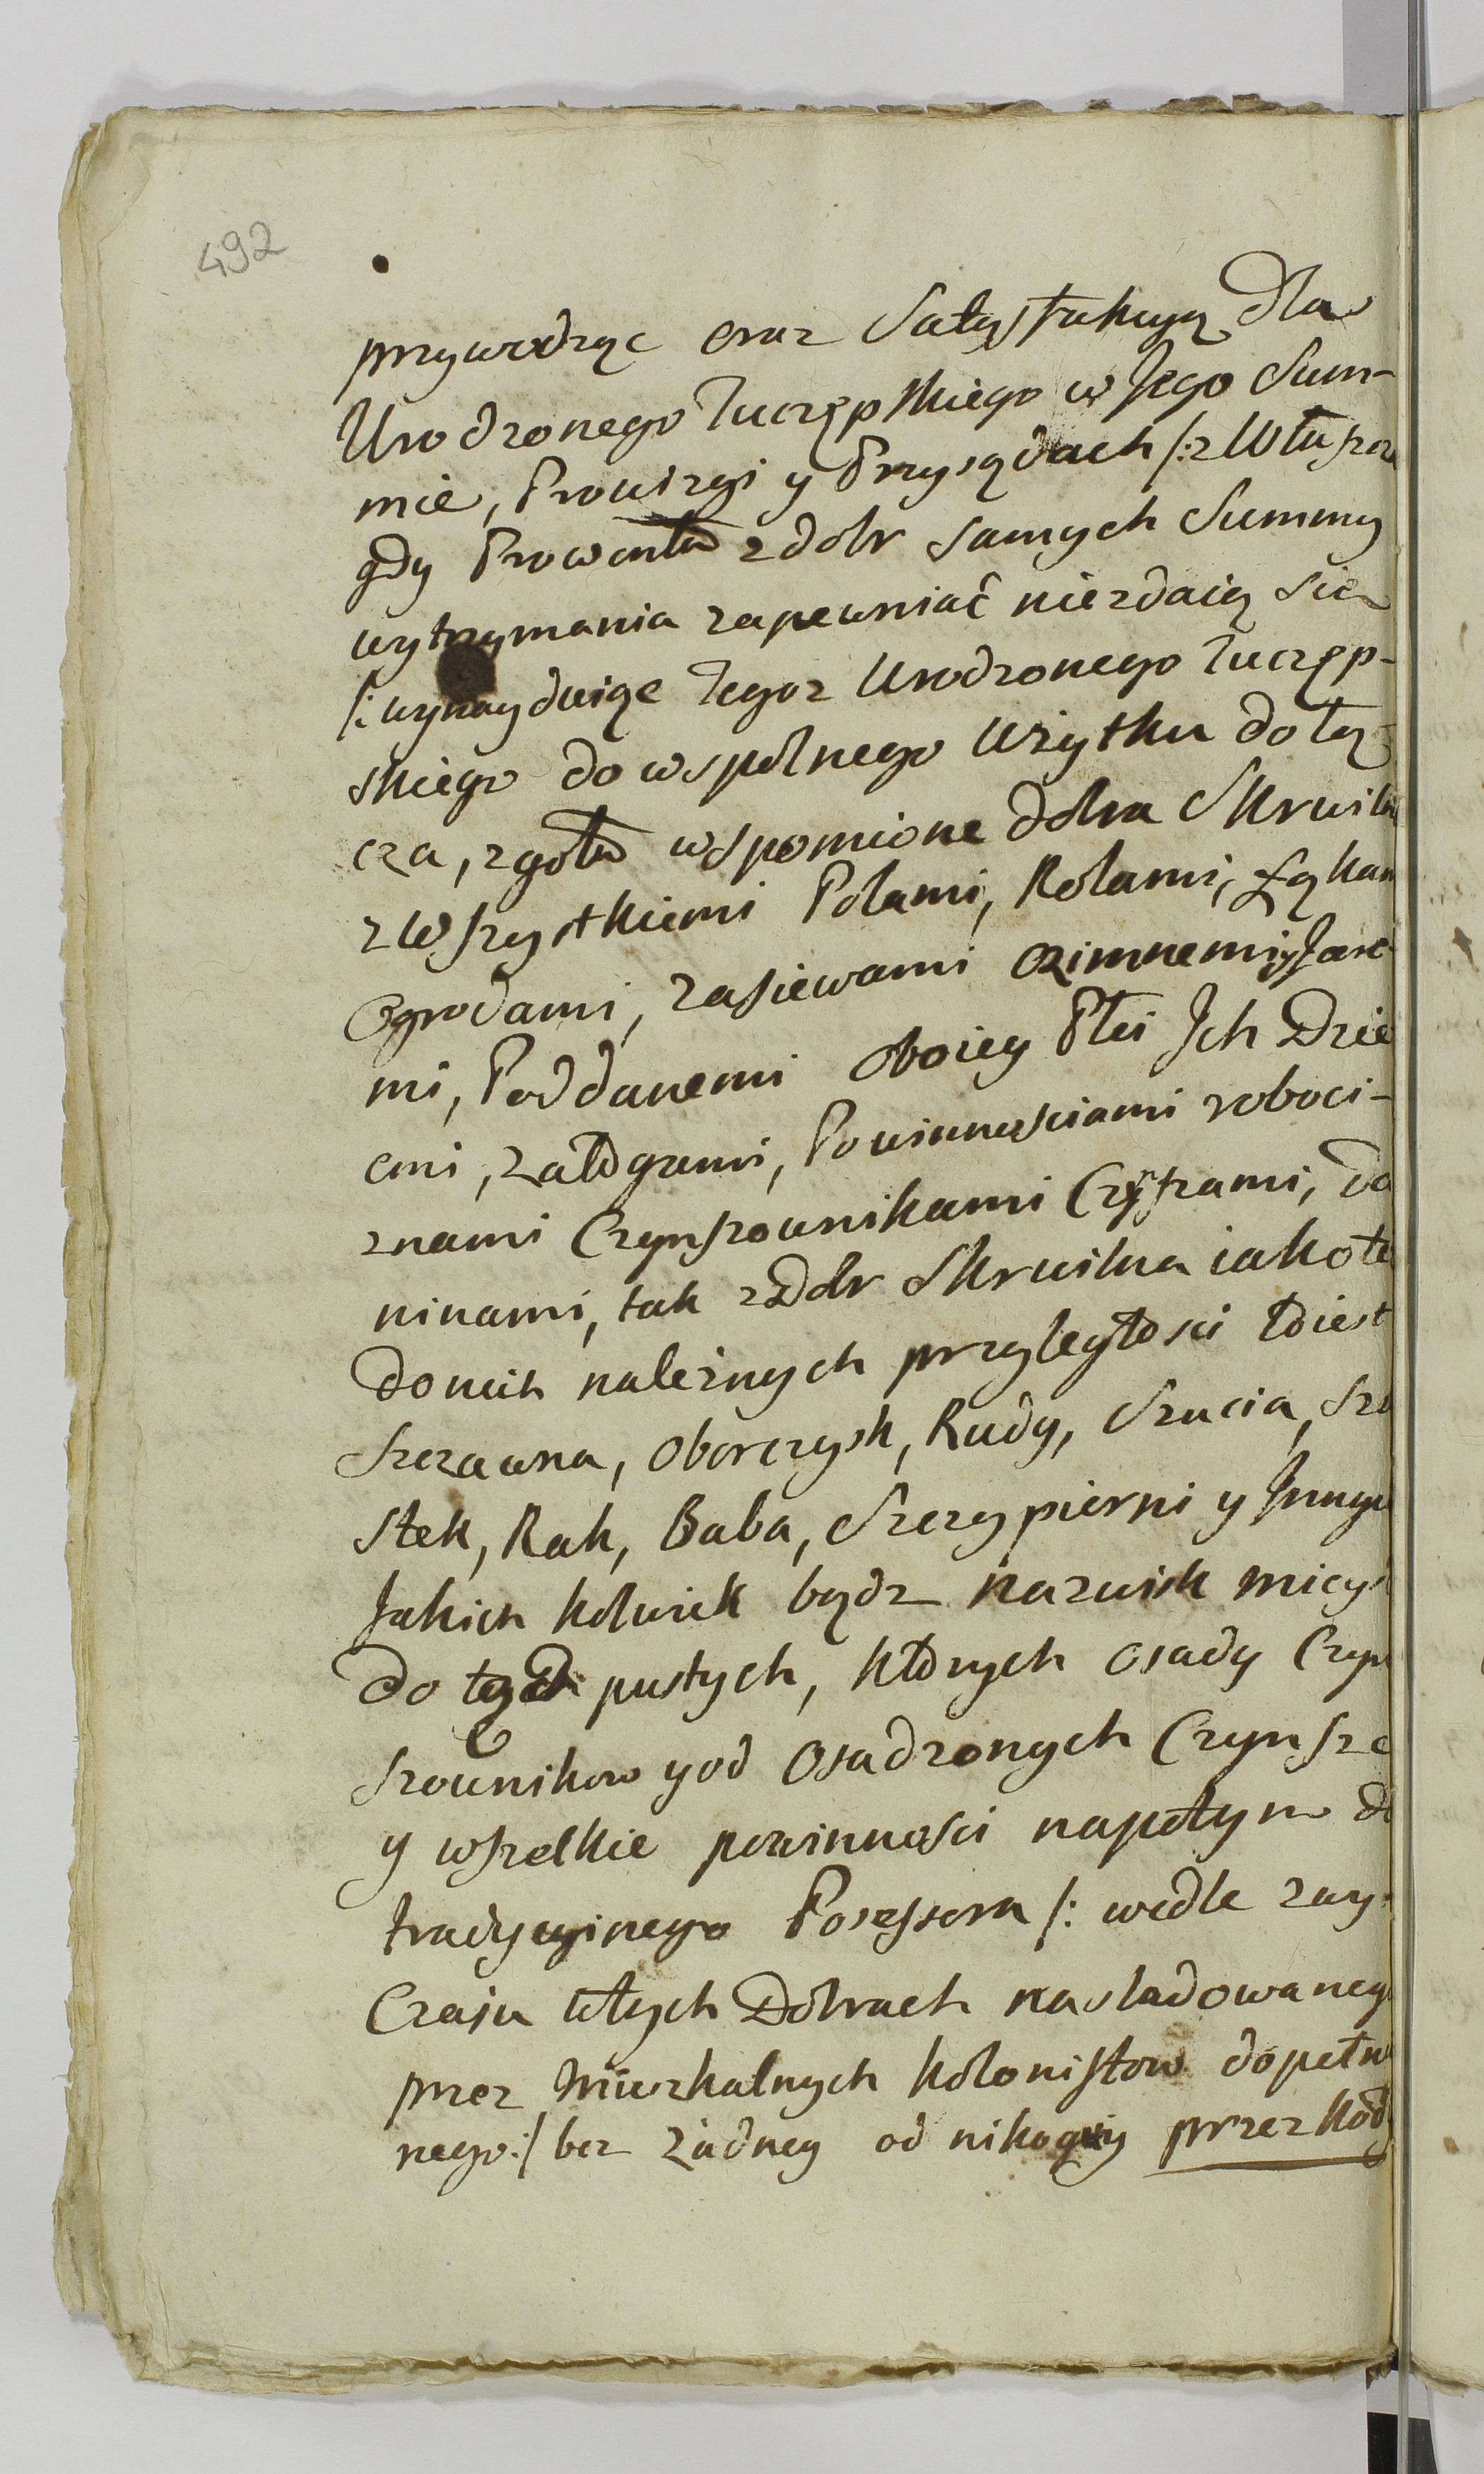 492
przywodząc oraz Satysfakcyą dla
Urodzonego Tuczępskiego w Jego Sum-
mie, Prowizyi y Przysądach /: z
gdy Prowenta z dobr samych Summy
wytrzymania zapewniać niezdaią się
/: wynayduiąc tegoz Urodzonego Tuczęp-
skiego do wspolnego Użytku dołą-
cza, zgoła wspomione dobra Skrwilna
z Wszystkiemi Polami, Rolami, Łąkam
Ogrodami, zasiewami ozimnemi y Jare-
mi, Poddanemi oboiey Płci Jch Dzie
cmi, załogami, Powinnosciami roboci-
znami Czynszownikami Czynszami, Da
ninami, tak z Dobr Skrwilna iako te
do nich należnych przyległosci to iest
Szczawna, Oborczysk, Rudy, Szucia, Szo
stek, Rak, Baba, Szczypiorni y Jnnych
Jakich kolwiek bądz nazwisk mieys
do tych pustych, ktorych osady Czyn
szownikow y od Osadzonych Czynsze
y wszelkie powinnosci napotym do
tradycyinego Possessora /: wedle zwy-
Czaiu w tych Dobrach nasladowanego
przez mieszkalnych kolonistow dopełnio
nego :/ bez żadney od nikogo przeszkody